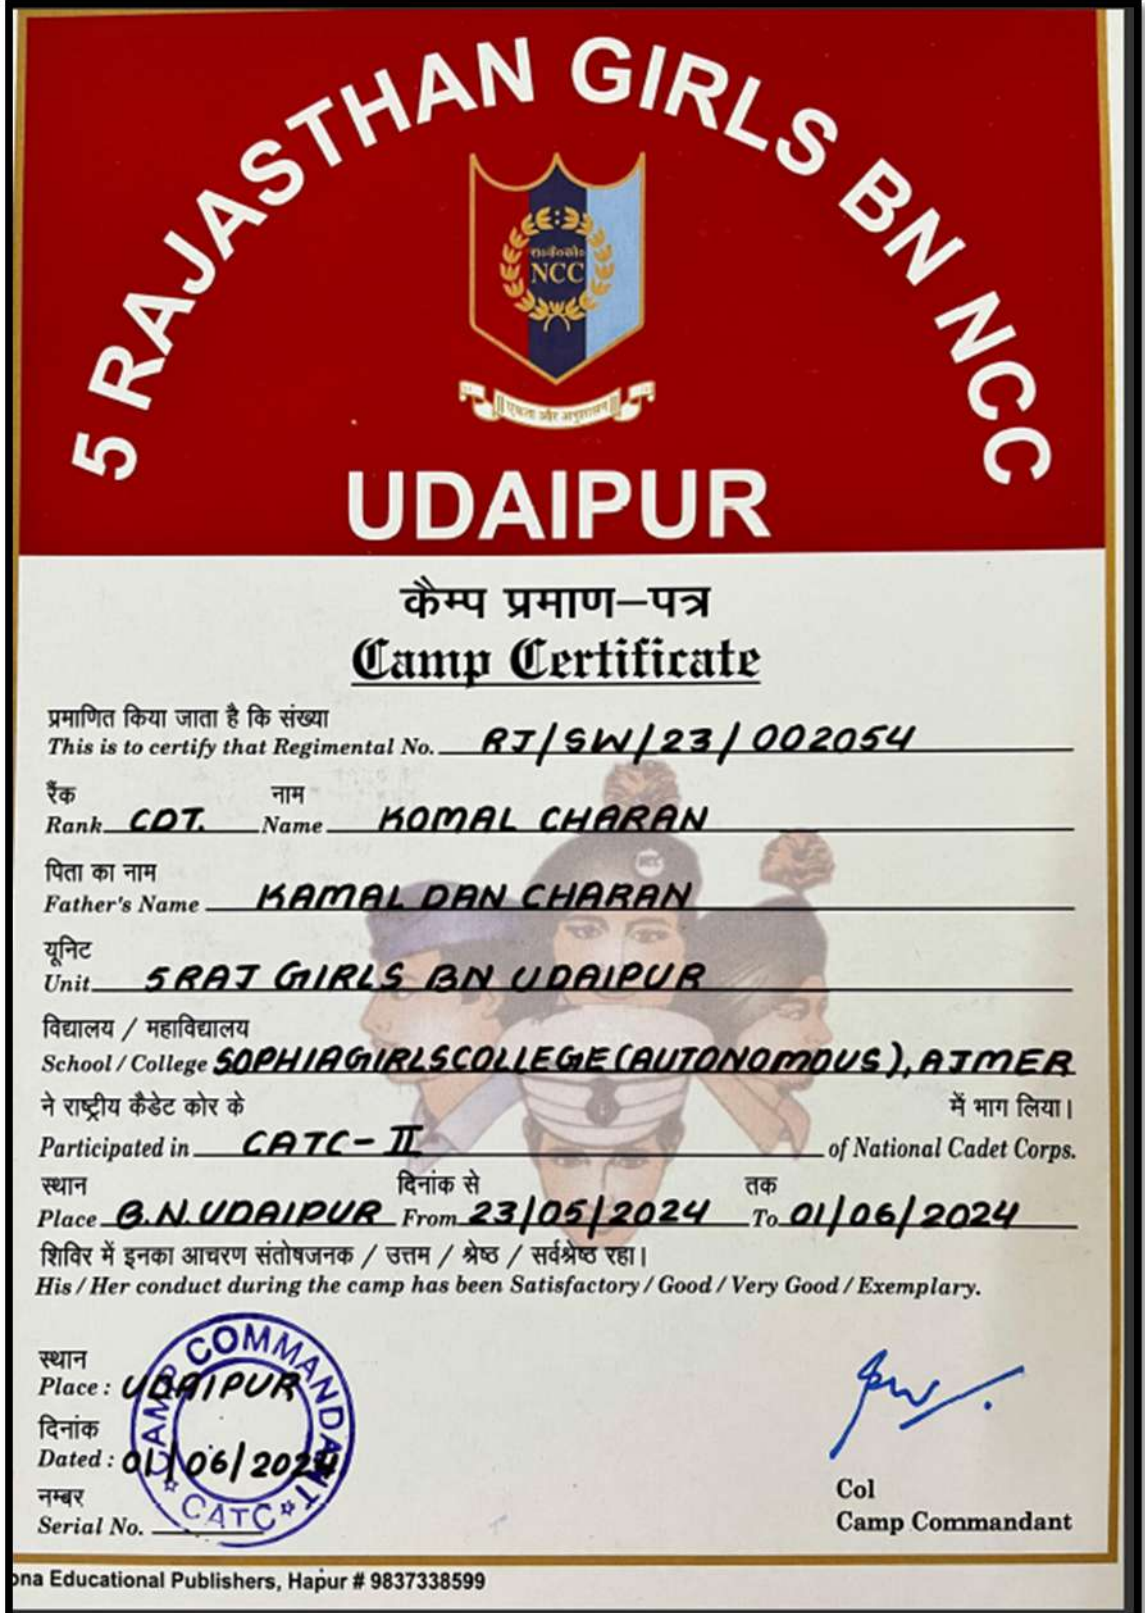 5 RAJASTHAN GIRLS BN NCC
रा०कै०को०
NCC
एकता और अनुशासन
UDAIPUR
कैम्प प्रमाण–पत्र
Camp Certificate
प्रमाणित किया जाता है कि संख्या
This is to certify that Regimental No. RJ/SW/23/002054
रैंक नाम
Rank CDT. Name KOMAL CHARAN
पिता का नाम
Father's Name KAMAL DAN CHARAN
यूनिट
Unit 5 RAJ GIRLS BN UDAIPUR
विद्यालय / महाविद्यालय
School / College SOPHIA GIRLS COLLEGE (AUTONOMOUS), AJMER
ने राष्ट्रीय कैडेट कोर के में भाग लिया।
Participated in CATC-II of National Cadet Corps.
स्थान दिनांक से तक
Place B.N. UDAIPUR From 23/05/2024 To 01/06/2024
शिविर में इनका आचरण संतोषजनक / उत्तम / श्रेष्ठ / सर्वश्रेष्ठ रहा।
His / Her conduct during the camp has been Satisfactory / Good / Very Good / Exemplary.
स्थान
Place : UDAIPUR
दिनांक
Dated : 01/06/2024
नम्बर
Serial No.
CAMP COMMANDANT
CATC
Col
Camp Commandant
ona Educational Publishers, Hapur # 9837338599